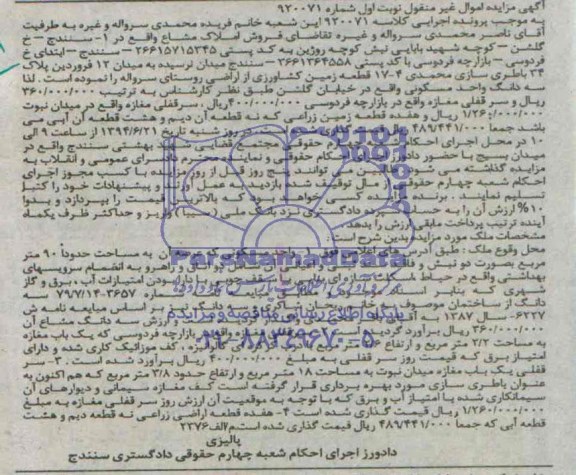 آگهی مزایده اموال غیر منقول نوبت اول شماره ۹۲۰۰۷۱
به موجب پرونده اجرایی کلاسه ۹۲۰۰۷۱ این شعبه خانم فریده محمدی سرواله و غیره به طرفیت
آقای ناصر محمدی سرواله و غیره تقاضای فروش املاک مشاع واقع در ۱- سنندج – خ
گلشن – کوچه شهید بابایی نبش کوچه روژین به کد پستی ۲۶۶۱۵۷۱۵۲۴۵ – سنندج – ابتدای خ
فردوسی – بازارچه فردوسی با کد پستی ۲۶۶۱۳۶۴۵۵۸ – سنندج میدان نرسیده به میدان ۱۲ فروردین پلاک
۳۴ باطری سازی محمدی ۴-۱۷ قطعه زمین کشاورزی از اراضی روستای سرواله را نموده است . لذا
سه دانگ واحد مسکونی واقع در خیابان گلشن طبق نظر کارشناس به ترتیب ۳۶۰/۰۰۰/۰۰۰
ریال و سر قفلی مغازه واقع در بازارچه فردوسی ۴۰۰/۰۰۰/۰۰۰ ریال ، سرقفلی مغازه واقع در میدان نبوت
۱/۲۶۰/۰۰۰/۰۰۰ ریال و هفده قطعه زمین زراعی که نه قطعه آن دیم و هشت قطعه آن آبی می
باشد جمعا ۴۸۹/۴۴۱/۰۰۰ روز شنبه تاریخ ۱۳۹۴/۶/۲۱ از ساعت ۹ الی
۱۰ در محل اجرای احکام چهارم حقوقی مجتمع قضایی بهشتی سنندج واقع در
میدان بسیج با حضور دادورز اجرای احکام حقوقی و نماینده محترم دادسرای عمومی و انقلاب به
مزایده گذاشته می شود می توانند پنج روز قبل از روز مزایده با کسب مجوز اجرای
احکام شعبه چهارم حقوقی از مال توقیف شده بازدید به عمل آورند و پیشنهادات خود را کتبا
تسلیم نمایند . برنده مزایده کسی خواهد بود که بالاترین قیمت را بپردازد و بدوا
۱۰% ارزش آن را به حساب سپرده دادگستری نزد بانک ملی ( سیبا ) واریز و حداکثر ظرف یکماه
آینده ترتیب پرداخت مابقی ارزش را بدهد.
مشخصات ملک مورد مزایده بدین شرح است :
محل وقوع ملک : طبق آدرس به مساحت حدوداً ۹۰ متر
مربع بصورت دو نبش و شامل دو اتاق و راهرو به انضمام سرویسهای
بهداشتی واقع در حیاط امتیازات آب ، برق و گاز
شهری که بنابر ۷۹/۷/۱۴-۳۶۵۷ سه
دانگ از ساختمان موصوف بر اساس مبایعه نامه ش
۶۲۲۷- سال ۱۳۸۷ به ارزش سه دانگ مشاع آن
۳۶۰/۰۰۰/۰۰۰ ریال برآورد گردید بازارچه فردوسی که یک باب مغازه
به مساحت ۲/۲ متر مربع و ارتفاع کف موزائیک کاری شده و دارای
امتیاز برق که قیمت روز سر قفلی به مبلغ ۴۰۰/۰۰۰/۰۰۰ ریال برآورد شده است . ۳- سر
قفلی یک باب مغازه میدان نبوت به مساحت ۱۸ متر مربع و ارتفاع حدود ۳/۸ متر مربع که هم اکنون به
عنوان باطری سازی مورد بهره برداری قرار گرفته است کف مغازه سیمانی و دیوارهای آن
سیمانکاری شده با امتیاز آب و برق که با توجه به موقعیت آن ارزش روز سر قفلی مغازه به مبلغ
۱/۲۶۰/۰۰۰/۰۰۰ ریال قیمت گذاری شده است ۴- هفده قطعه اراضی زراعی نه قطعه دیم و هشت
قطعه آبی که جمعا ۴۸۹/۴۴۱/۰۰۰ ریال قیمت گذاری شده است.م/الف ۲۲۷۶
پالیزی
دادورز اجرای احکام شعبه چهارم حقوقی دادگستری سنندج
ParsNamadData
پایگاه اطلاع رسانی مناقصه و مزایده
۰۲۱-۸۸۳۴۹۶۷۰-۵